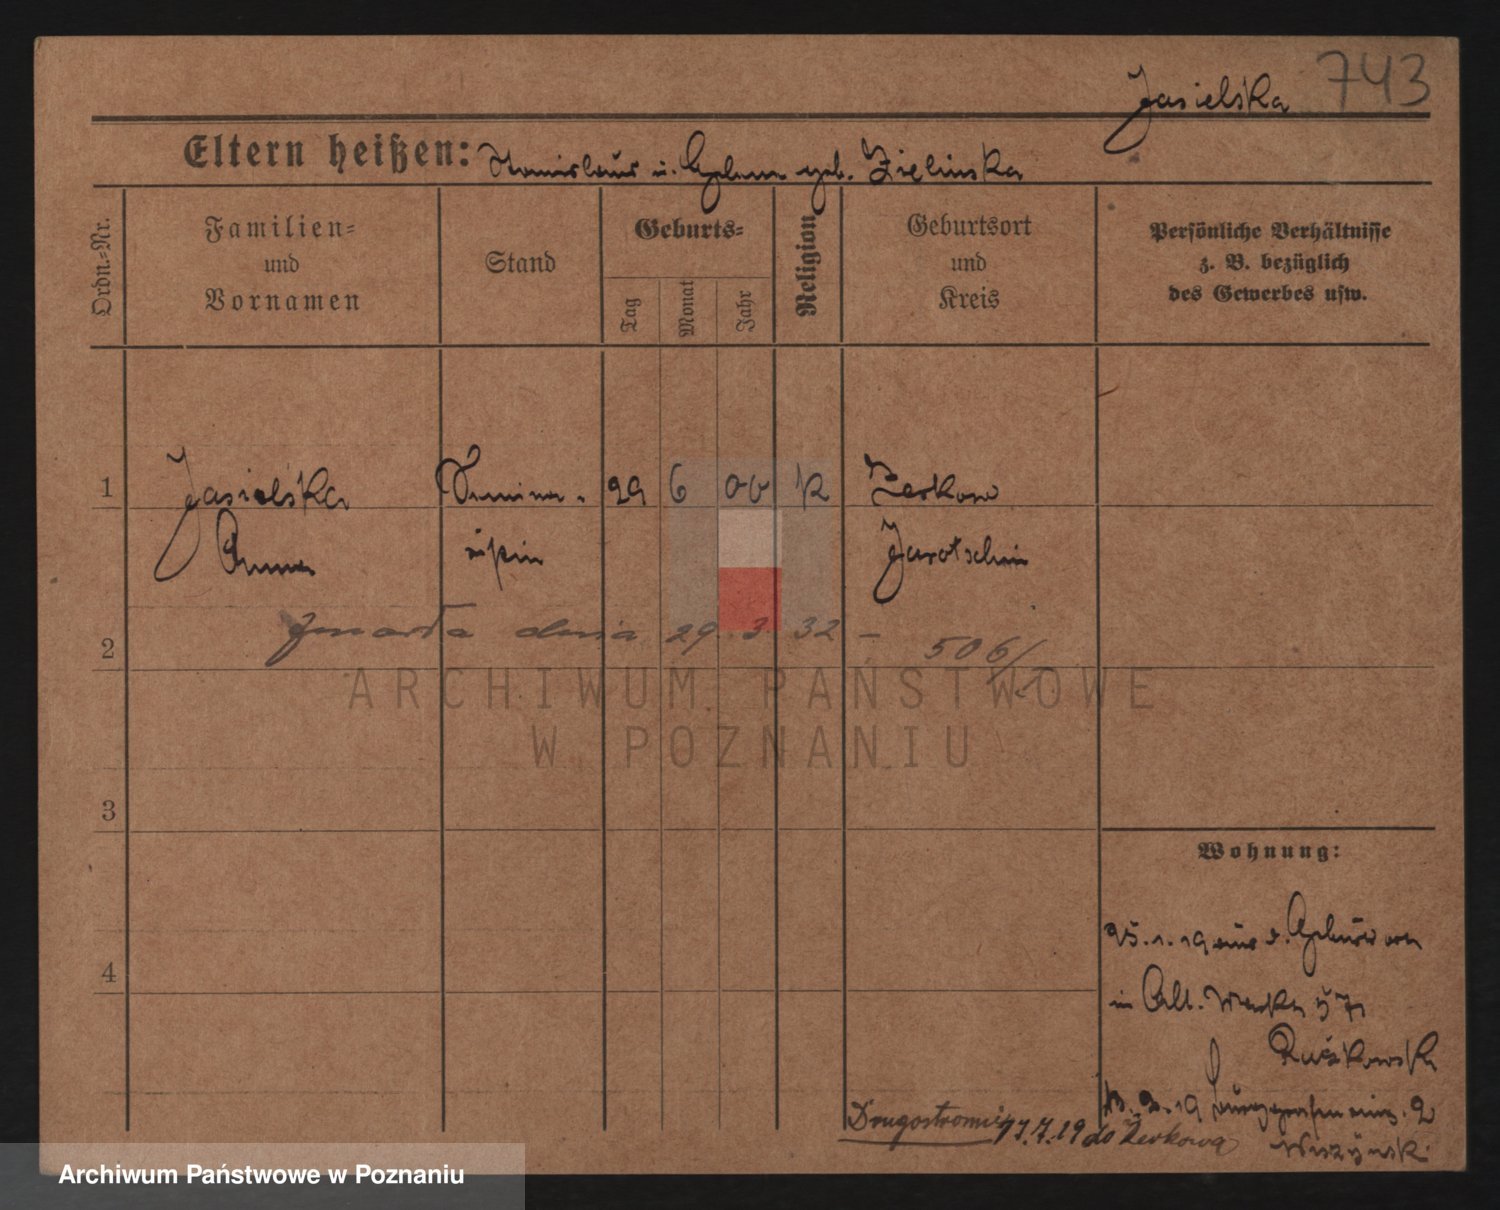 Jasielska 743
Eltern heißen: Stanislaus u. Helene geb. Zielinska
Ordn.-Nr.
Familien-
und
Vornamen
Stand
Geburts-
Tag
Monat
Jahr
Religion
Geburtsort
und
Kreis
Persönliche Verhältnisse
z. B. bezüglich
des Gewerbes usw.
1 Jasielska Semina- 29 6 00 k Zerkow
Anna ristin Jarotschin
2 Zmarła dnia 29 3 32 – 506/
ARCHIWUM PAŃSTWOWE
W POZNANIU
3
Wohnung:
4
25.1.19 aus
in Alt. 57
Ruszkowski
19 2
Drugostronnie 17.7.19 do Żerkowa
Wiszyński
Archiwum Państwowe w Poznaniu